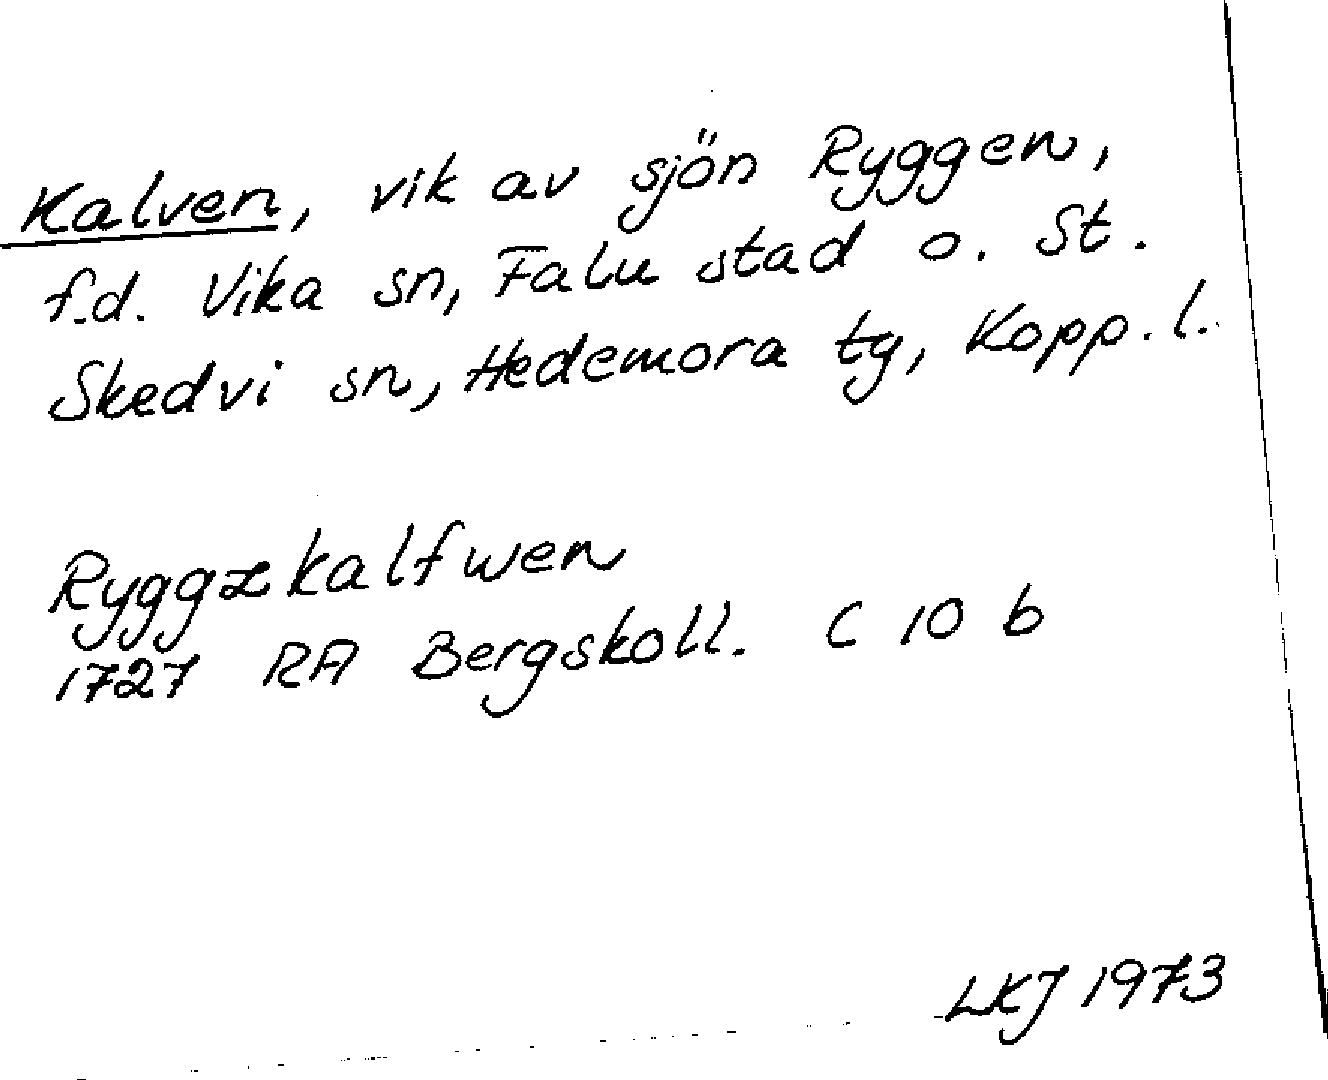 Kalven, vik av sjön Ryggen,
f.d. Vika sn, Falu stad o. St.
Skedvi sn, Hedemora tg, Kopp. l.
Ryggzkalfwen
1727 RA Bergskoll. C 10 b
LKJ 1973